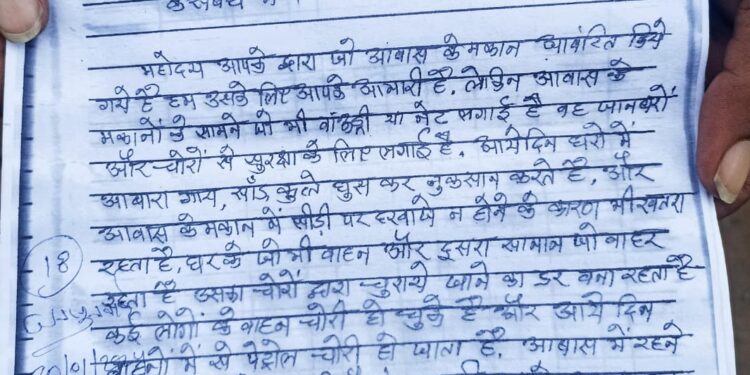 के संबंध में।
महोदय आपके द्वारा जो आवास के मकान आवंटित किये
गये है हम उसके लिए आपके आभारी है. लेकिन आवास के
मकानों के सामने जो भी बांउन्ड्री या नेट लगाई है वह जानवरों
और चोरों से सुरक्षा के लिए लगाई है. आयेदिन घरो में
आबारा गाय, साँड कुत्ते घुस कर नुकसान करते है, और
आवास के मकान में सीडी पर दरवाजे न होने के कारण भी खतरा
18
रहता है, घर के जो भी वाहन और दुसरा सामान जो वाहर
रहता है उसका चोरों द्वारा चुराये जाने का डर बना रहता है
कई लोगों के वाहन चोरी हो चुके है और आये दिन
में से पेट्रोल चोरी हो जाता है. आवास में रहने